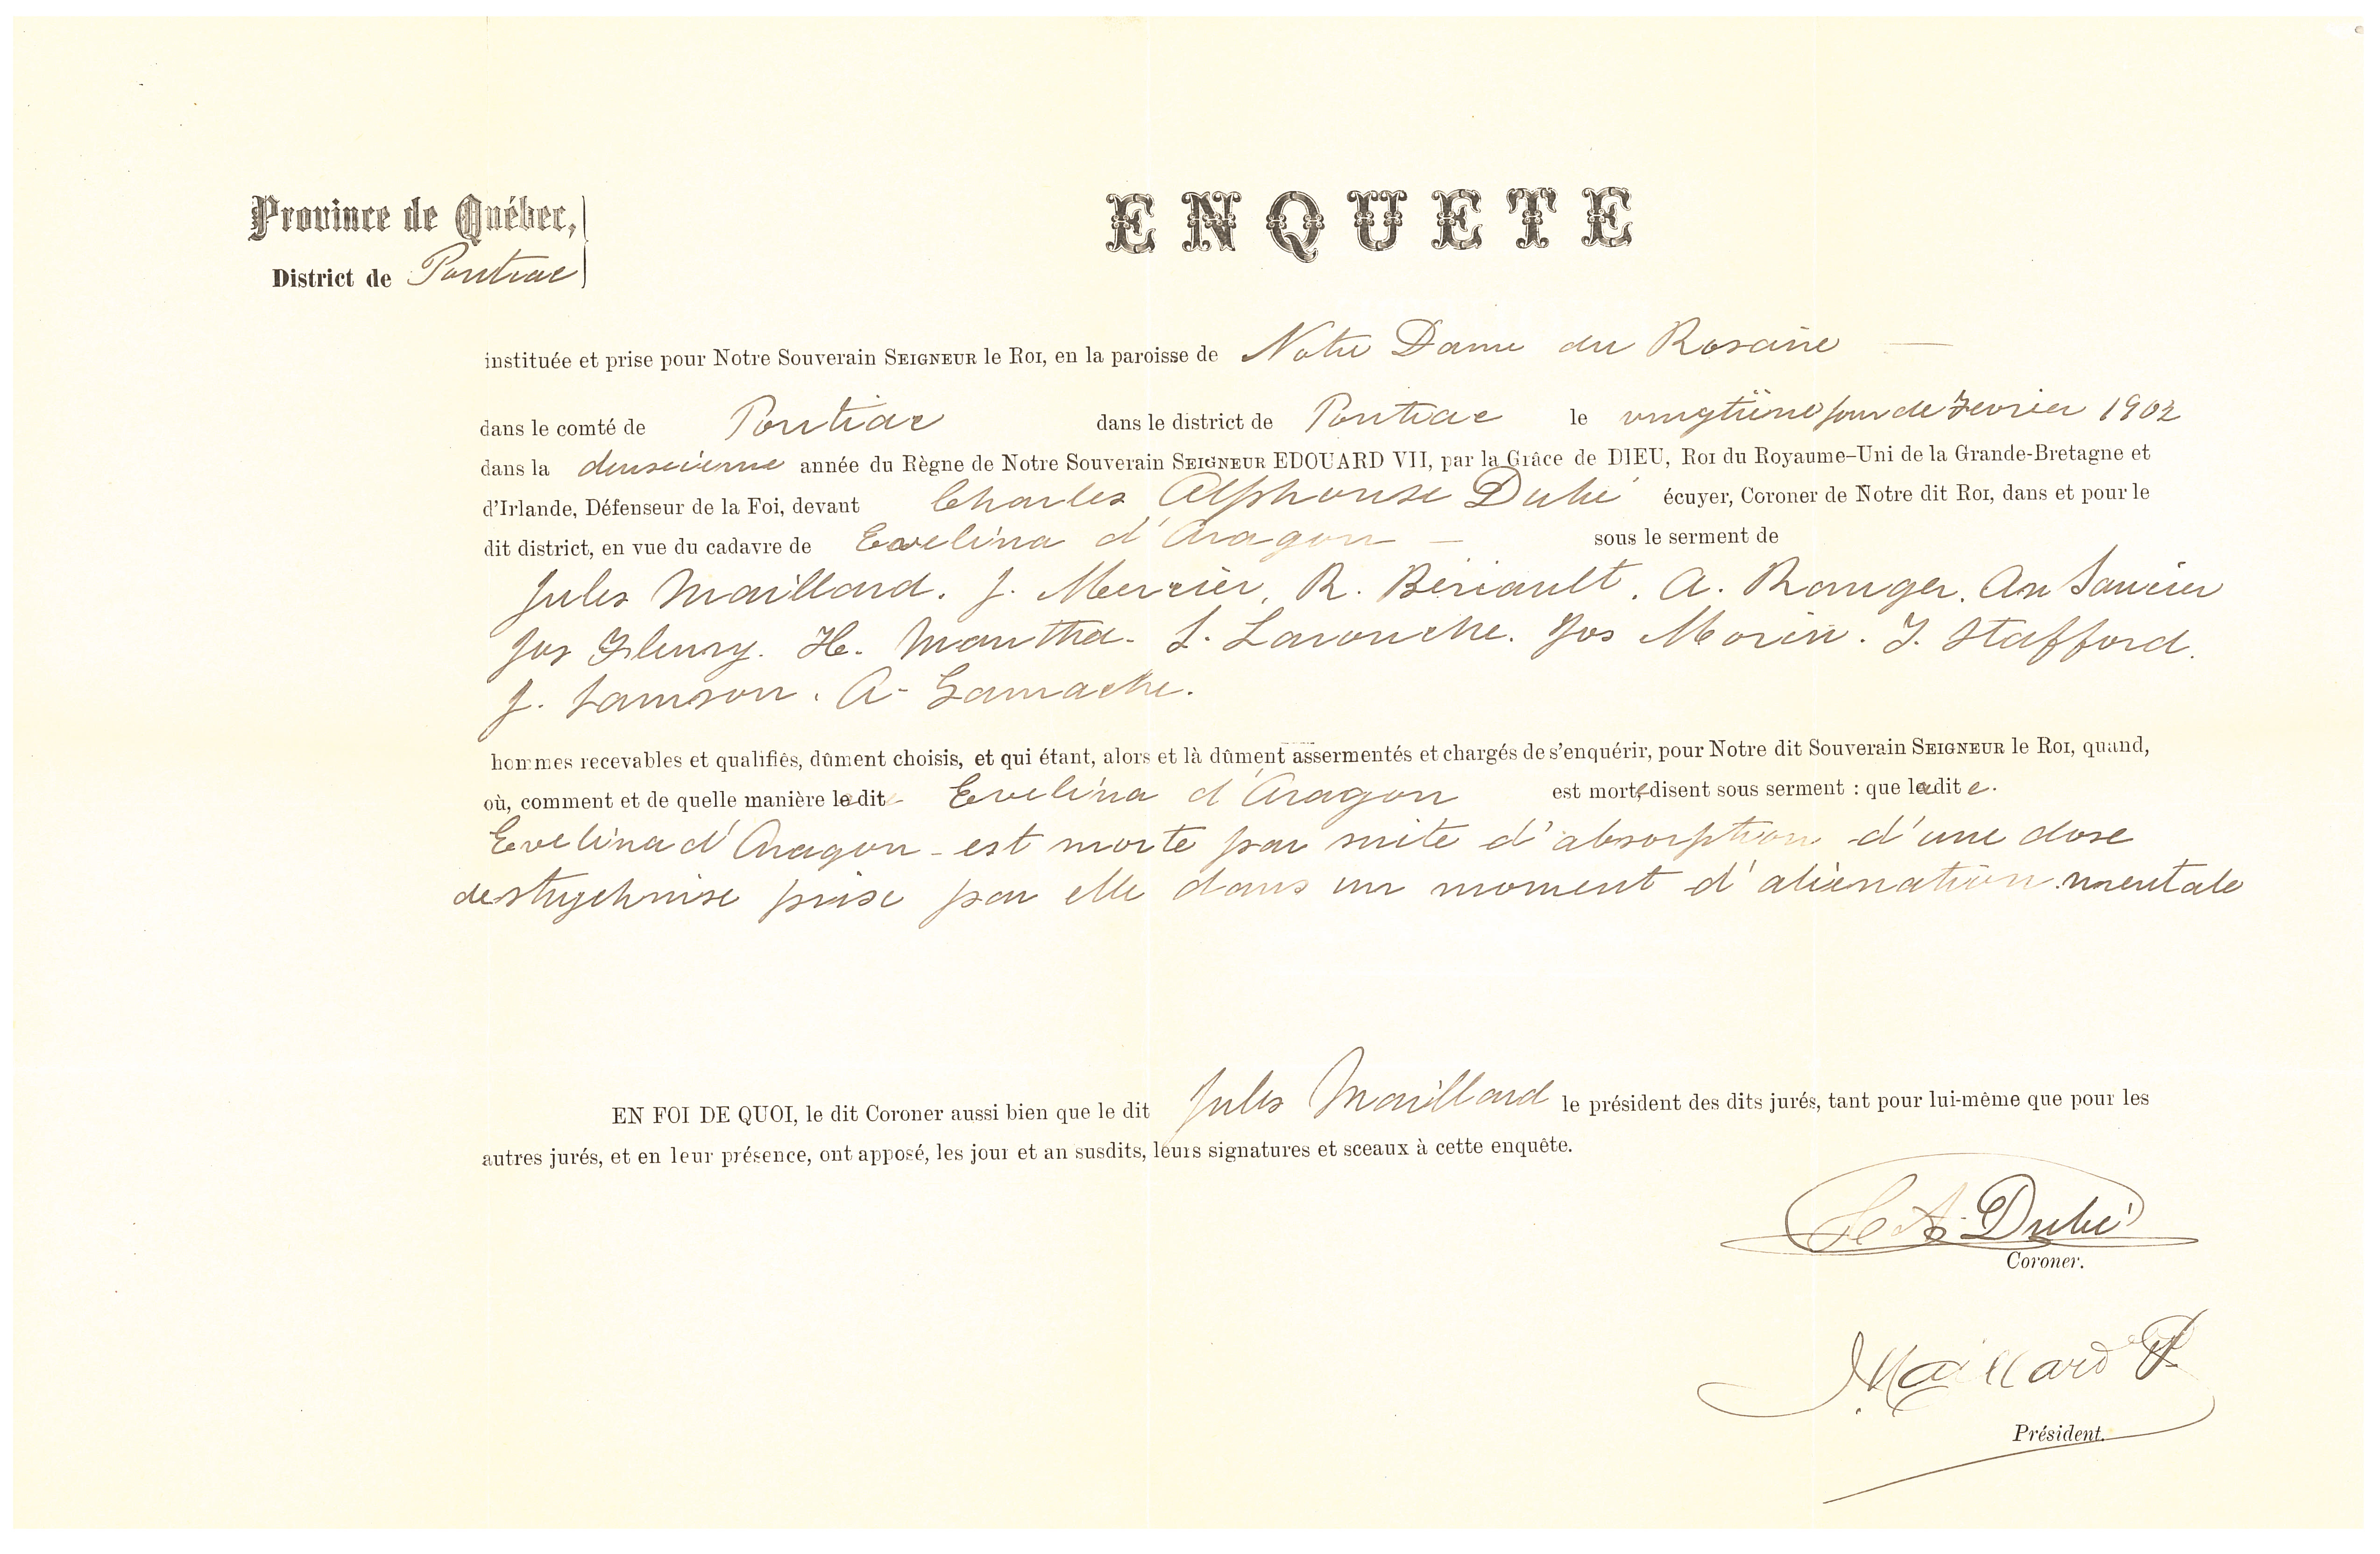 Province de Québec,
District de Pontiac
ENQUETE
instituée et prise pour Notre Souverain SEIGNEUR le ROI, en la paroisse de Notre Dame du Rosaire
dans le comté de Pontiac dans le district de Pontiac le vingtième jour de Fevrier 1902
dans la deuxcième année du Règne de Notre Souverain SEIGNEUR EDOUARD VII, par la Grâce de DIEU, ROI du Royaume-Uni de la Grande-Bretagne et
d'Irlande, Défenseur de la Foi, devant Charles Alphonse Dubé écuyer, Coroner de Notre dit ROI, dans et pour le
dit district, en vue du cadavre de Evelina d'Aragon — sous le serment de
Jules Maillard. J. Mercier, R. Bériault. A. Ranger. An Saucier
Jos Fleury. H. Mantha. L. Larouche. Jos Morin. J. Stafford.
J. Samson. A. Gamache.
hommes recevables et qualifiés, dûment choisis, et qui étant, alors et là dûment assermentés et chargés de s'enquérir, pour Notre dit Souverain SEIGNEUR le ROI, quand,
où, comment et de quelle manière la dite Evelina d'Aragon est morte, disent sous serment : que la dite.
Evelina d'Aragon - est morte par suite d'absorption d'une dose
de strychnine prise par elle dans un moment d'aliénation mentale
EN FOI DE QUOI, le dit Coroner aussi bien que le dit Jules Maillard le président des dits jurés, tant pour lui-même que pour les
autres jurés, et en leur présence, ont apposé, les jour et an susdits, leurs signatures et sceaux à cette enquête.
C A Dubé
Coroner.
J. Maillard P.
Président.